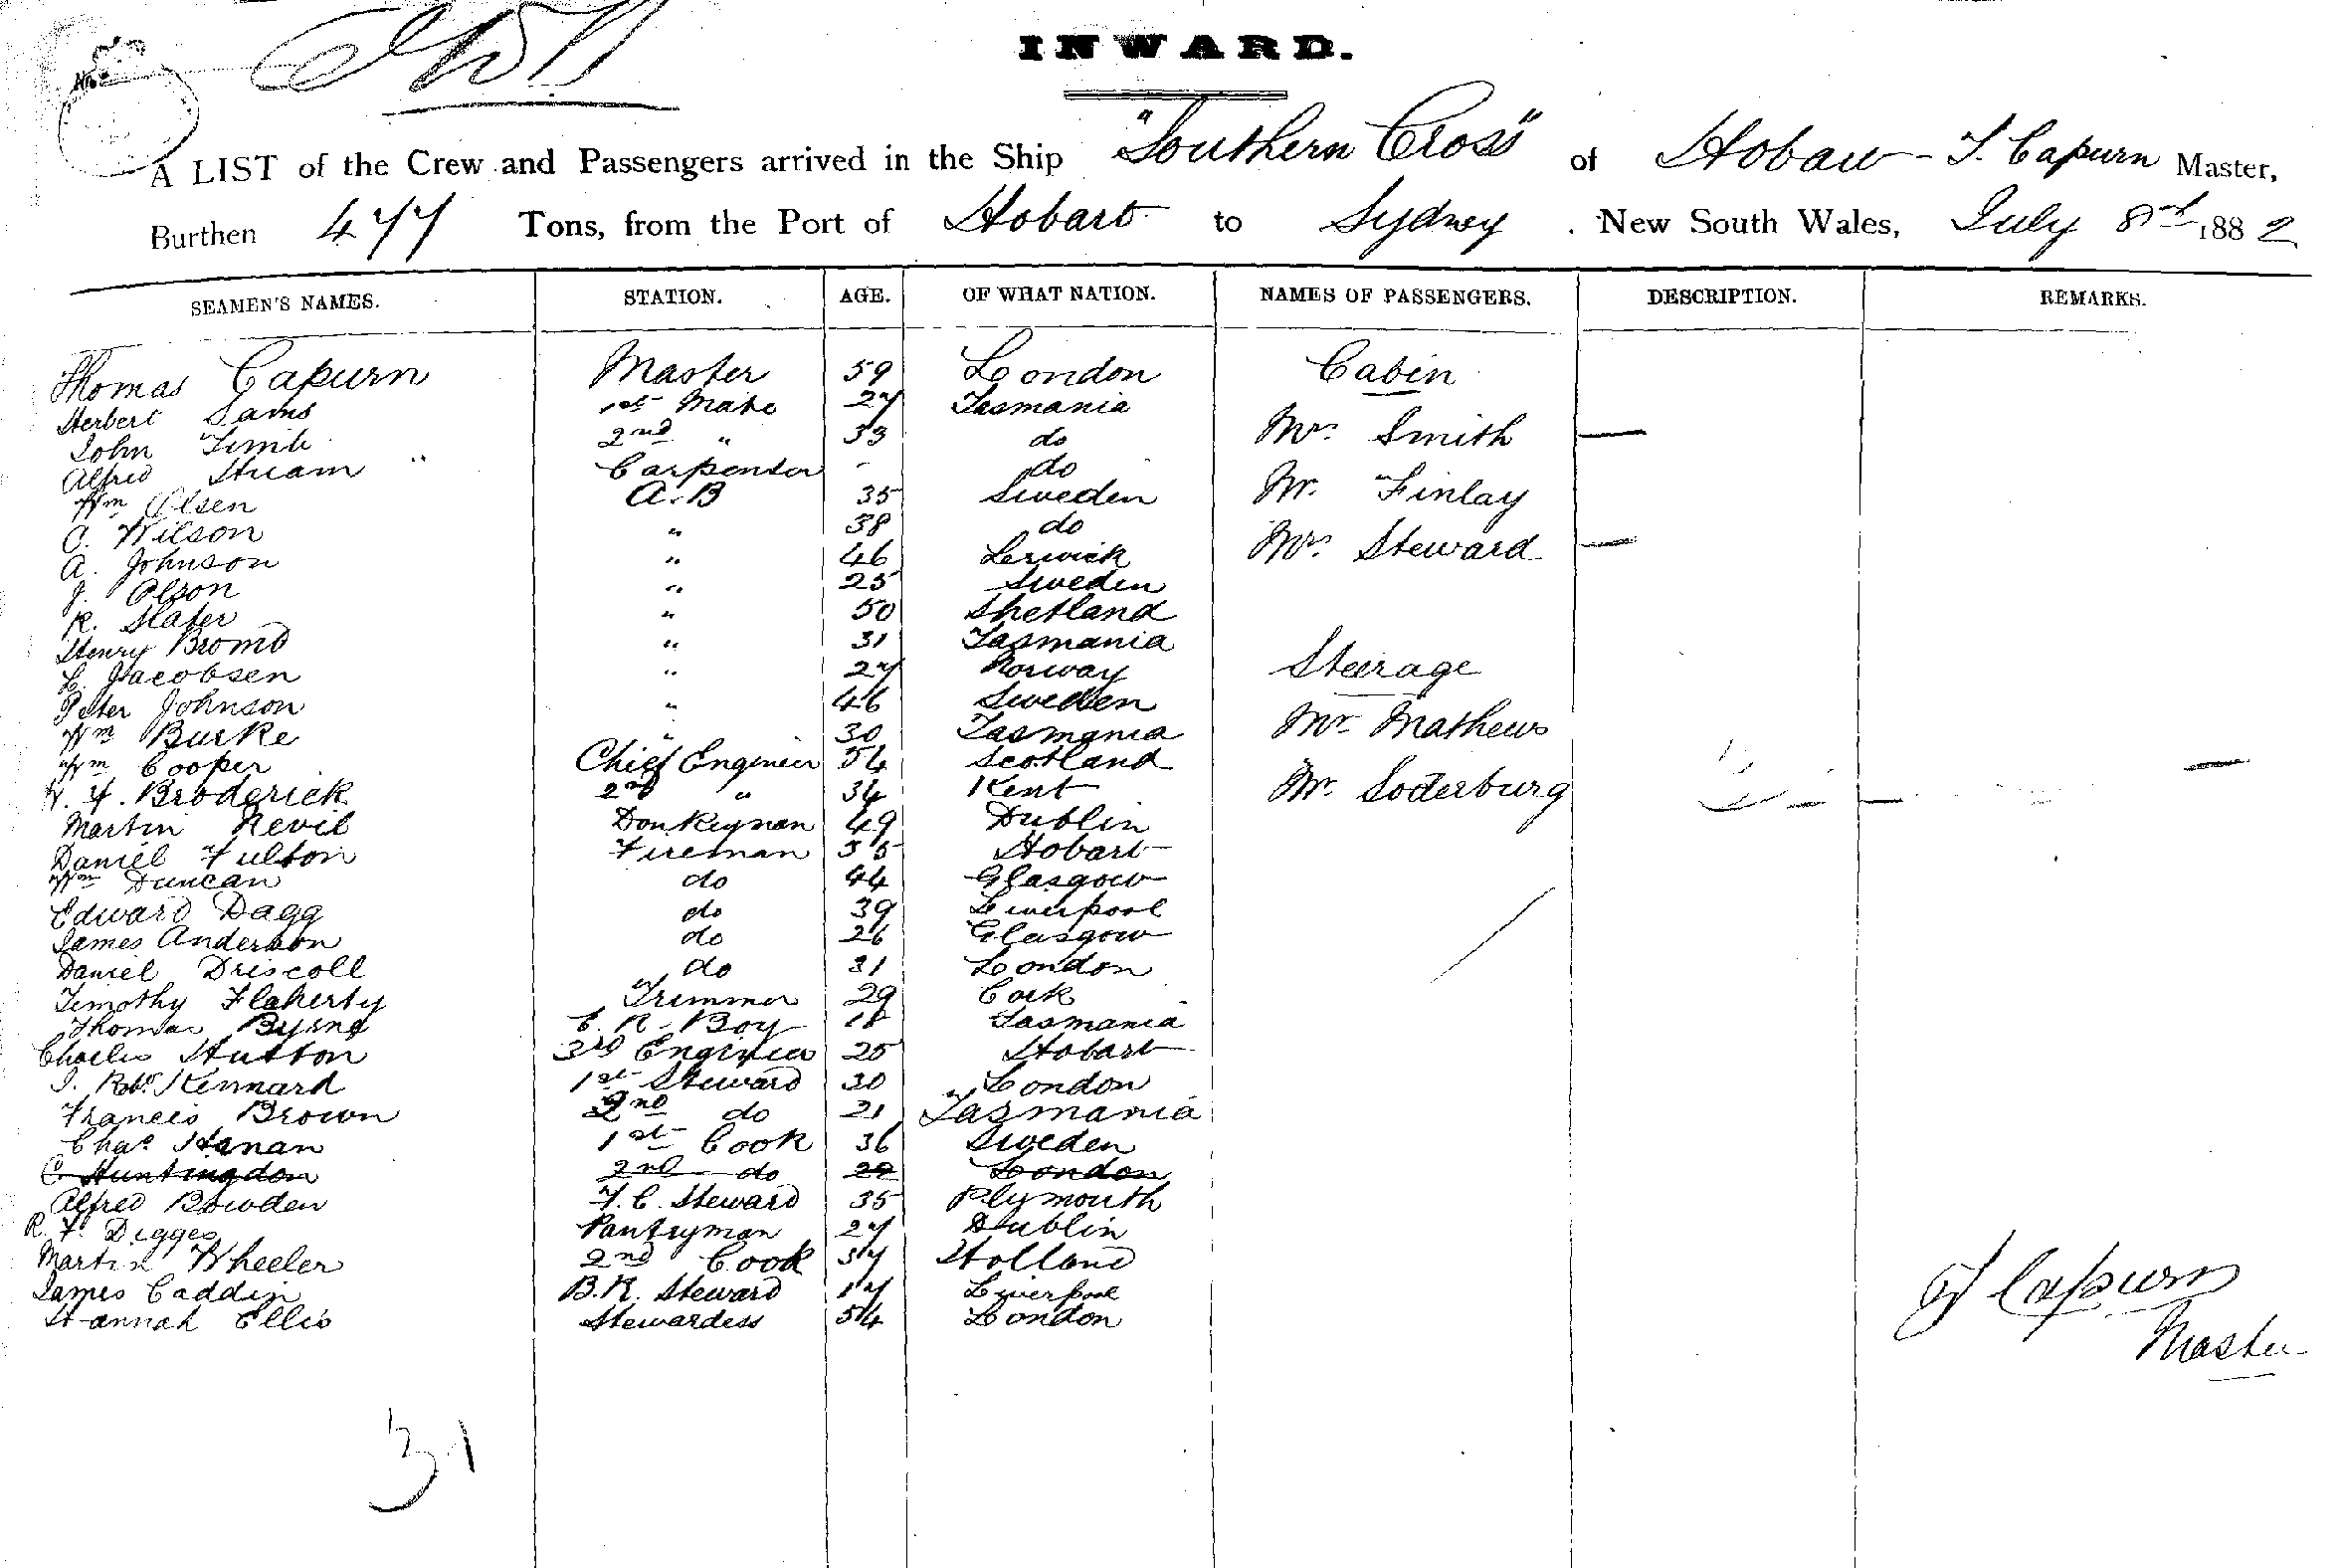 No.
INWARD.
A LIST of the Crew and Passengers arrived in the Ship "Southern Cross" of Hobart T. Capurn Master,
Burthen 477 Tons, from the Port of Hobart to Sydney . New South Wales, July 8th 1882
SEAMEN'S NAMES. STATION. AGE. OF WHAT NATION. NAMES OF PASSENGERS. DESCRIPTION. REMARKS.
Thomas Capurn Master 59 London Cabin
Herbert Sams 1st Mate 27 Tasmania
John 2nd " 33 do Mrs Smith —
Alfred Carpenter - do
Wm Olsen A.B 35 Sweden Mr. Finlay
C. Wilson " 38 do
A. Johnson " 46 Lerwick Mrs Steward —
J. Olson " 25 Sweden
R. Slater " 50 Shetland
Henry " 31 Tasmania
L. Jacobsen " 27 Norway Steerage
Peter Johnson " 46 Sweden
Wm Burke " 30 Tasmania Mr Mathews
Wm Cooper Chief Engineer 54 Scotland
Broderick 2nd " 34 Kent Mr. Soderburg
Martin Nevil Donkeyman 49 Dublin
Daniel Fulton Fireman 35 Hobart
Wm Duncan do 44 Glasgow
Edward Dagg do 39 Liverpool
James Anderson do 26 Glasgow
Daniel Driscoll do 31 London
Timothy Flaherty Trimmer 29 Cork
Thomas Byrne E. R. Boy 18 Tasmania
Charles Hutton 3rd Engineer 25 Hobart
J. Robt. Kennard 1st Steward 30 London
Francis Brown 2nd do 21 Tasmania
Chas Hanan 1st Cook 36 Sweden
C Huntingdon 2nd do 22 London
Alfred Bowden F. C. Steward 35 Plymouth
R. F. Digges Pantryman 27 Dublin
Martin Wheeler 2nd Cook 37 Holland
James Caddin B.R. Steward 17 Liverpool
Hannah Ellis Stewardess 54 London
T Capurn
Master
31